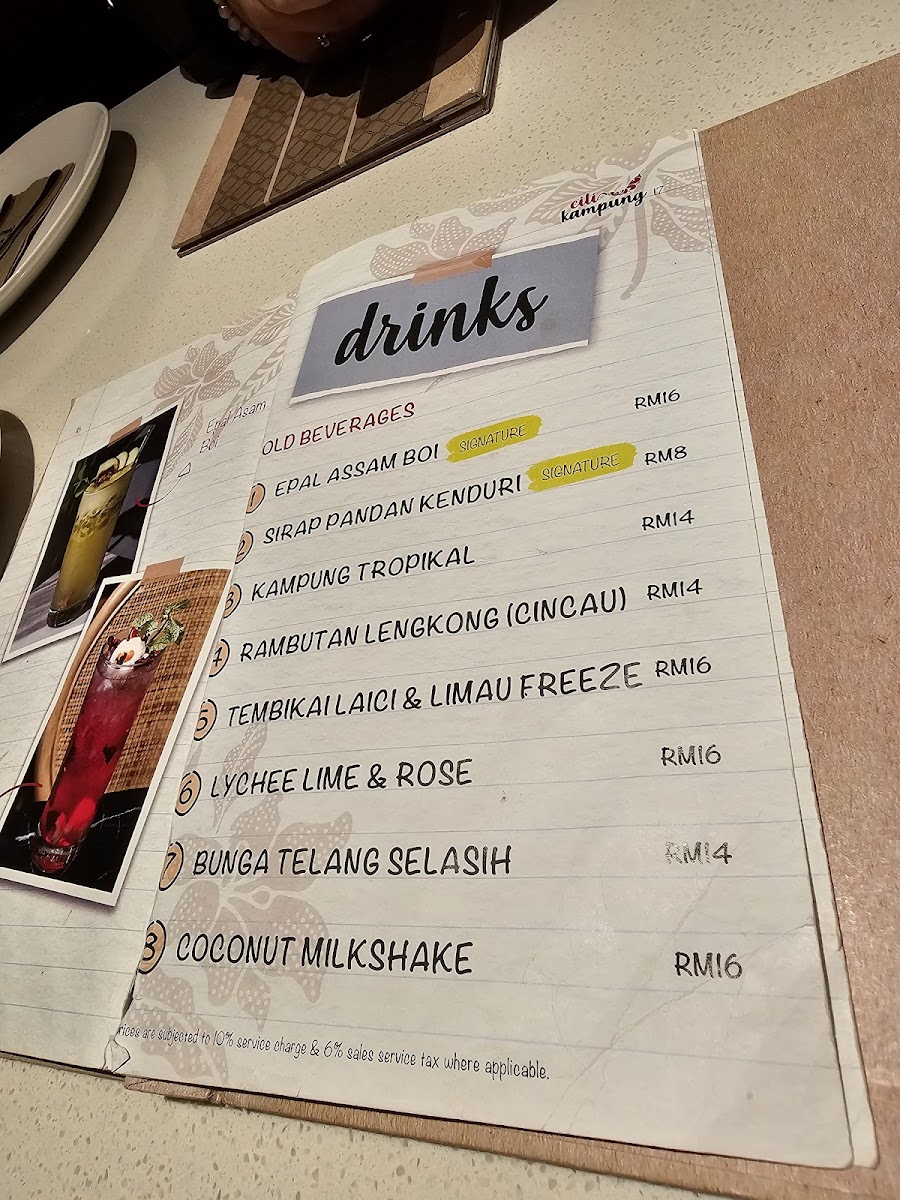 cili
kampung 17
drinks
6
Epal Asam
Boi
OLD BEVERAGES
1 EPAL ASSAM BOI SIGNATURE RM16
2 SIRAP PANDAN KENDURI SIGNATURE RM8
3 KAMPUNG TROPIKAL RM14
4 RAMBUTAN LENGKONG (CINCAU) RM14
5 TEMBIKAI LAICI & LIMAU FREEZE RM16
6 LYCHEE LIME & ROSE RM16
7 BUNGA TELANG SELASIH RM14
8 COCONUT MILKSHAKE RM16
rices are subjected to 10% service charge & 6% sales service tax where applicable.